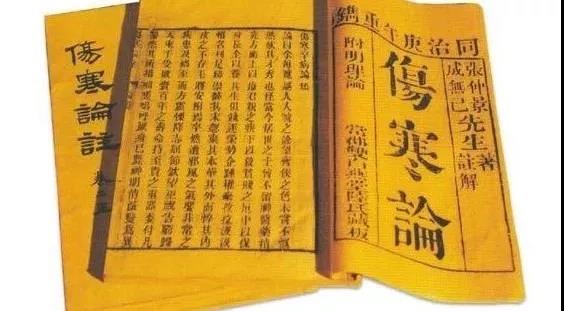 同治庚午年重鐫
張仲景先生著
成無己 註解
傷寒論
附明理論
常郡雙白燕堂陸氏藏板
傷寒卒病論集
論曰余每覽越人入虢之診望齊侯之色未嘗不慨
然歎其才秀也怪當今居世之士曾不留神醫藥精
究方術上以療君親之疾下以救貧賤之厄中以保
身長全以養其生但競逐榮勢企踵權豪孜孜汲汲
惟名利是務崇飾其末忽棄其本華其外而悴其內
皮之不存毛將安附焉卒然遭邪風之氣嬰非常之
疾患及禍至而方震慄降志屈節欽望巫祝告窮歸
天束手受敗賫百年之壽命持至貴之重器委付凡
醫恣其所措咄嗟嗚呼厥身已斃神明消滅變爲異
傷寒論註 卷之五